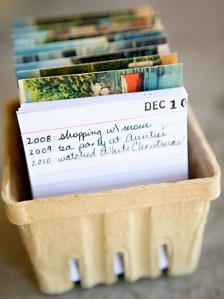 DEC 10
2008: shopping w/ mom
2009: tea party at Auntie's
2010: watched White Christmas